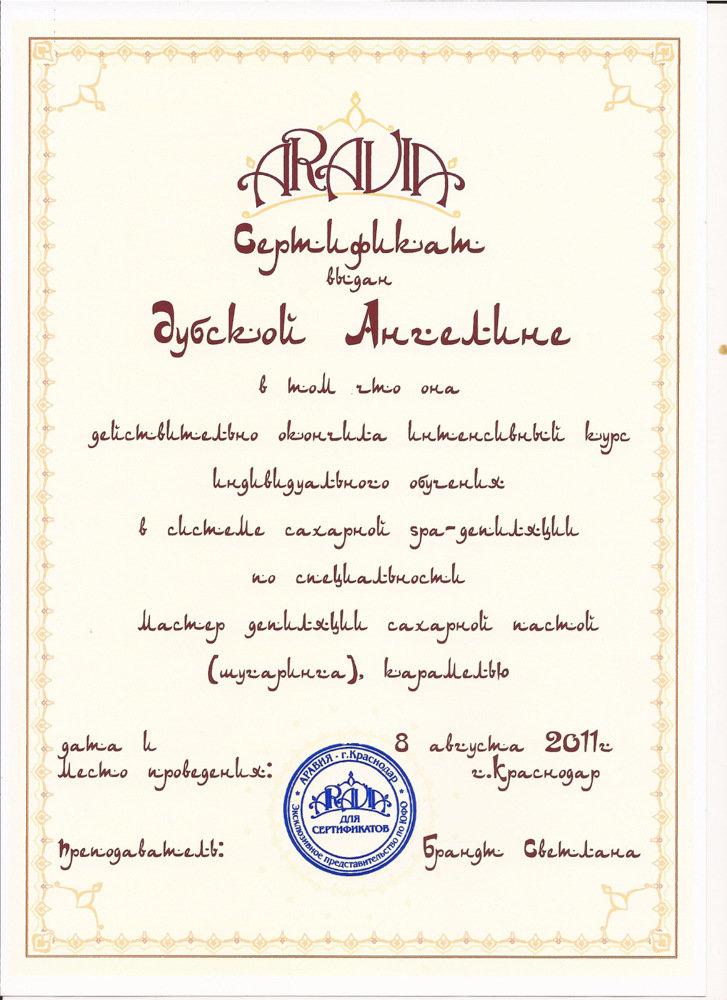 ARAVIA
Сертификат
выдан
Дубской Ангелине
в том что она
действительно окончила интенсивный курс
индивидуального обучения
в системе сахарной spa-депиляции
по специальности
Мастер депиляции сахарной пастой
(шугаринга), карамелью
дата и
место проведения:
8 августа 2011г
г.Краснодар
АРАВИЯ - г.Краснодар
ARAVIA
ДЛЯ
СЕРТИФИКАТОВ
Эксклюзивное представительство по ЮФО
Преподаватель:
Брандт Светлана